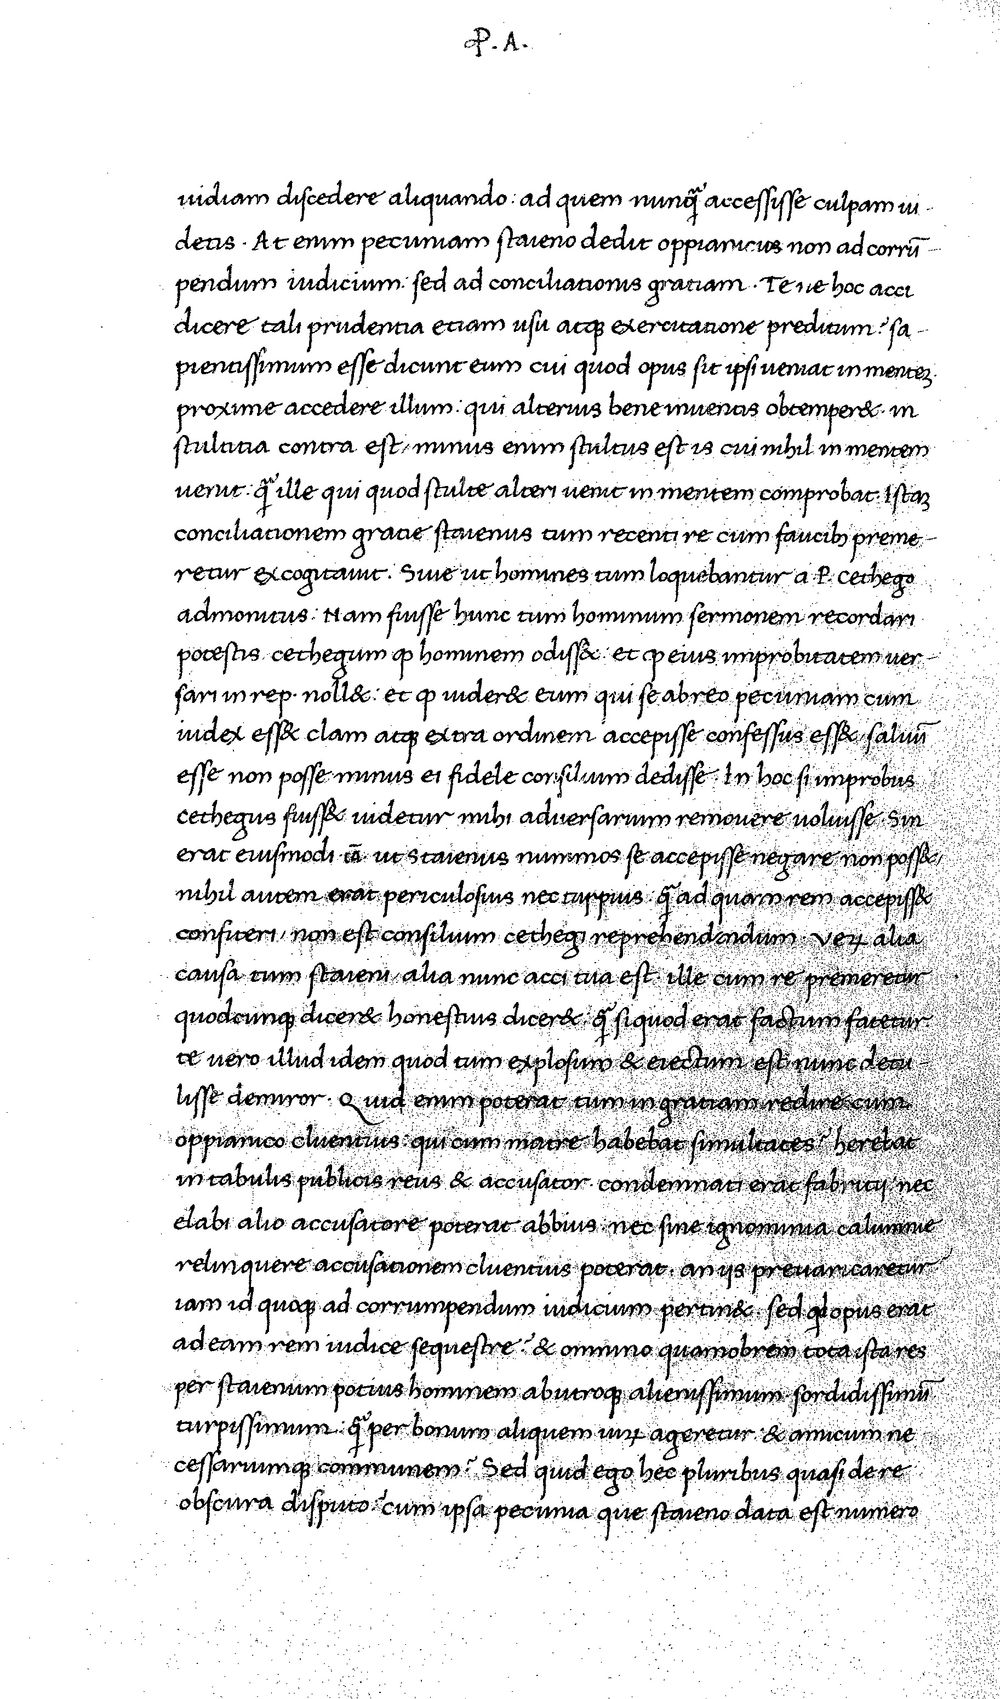 P. A.
uidiam discedere aliquando: ad quem nunqᷓ accessisse culpam ui-
detis. At enim pecuniam staieno dedit oppianicus non ad corrū-
pendum iudicium: sed ad conciliationis gratiam. Tene hoc acci
dicere tali prudentia etiam usu atqꝫ exercitatione preditum? sa-
pientissimum esse dicunt eum cui quod opus sit ipsi ueniat in menteꝫ.
proxime accedere illum: qui alterius bene inuentis obtemper&. in
stultitia contra est/ minus enim stultus est is cui nihil in mentem
uenit: qᷓ ille qui quod stulte alteri uenit in mentem comprobat. Istaꝫ
conciliationem gratie staienus tum recenti re cum faucibꝫ preme-
retur excogitauit. Siue ut homines tum loquebantur a P. cethego
admonitus: Nam fuisse hunc tum hominum sermonem recordari
potestis. cethegum ꝙ hominem odiss&: et ꝙ eius improbitatem uer-
sari in rep. noll&: et ꝙ uider& eum qui se ab reo pecuniam cum
iudex ess& clam atqꝫ extra ordinem accepisse confessus ess& saluū
esse non posse minus ei fidele consilium dedisse. In hoc si improbus
cethegus fuiss& uidetur mihi aduersarium remouere uoluisse. Sin
erat eiusmodi cā ut Staienus nummos se accepisse negare non poss&/
nihil autem erat periculosius nec turpius qᷓ ad quam rem accepiss&
confiteri/ non est consilium cethegi reprehendendum. Veꝝ alia
causa tum staieni/ alia nunc acci tua est. ille cum re premeretur
quodcunqꝫ dicer& honestius dicer&. qᷓ si quod erat factum fatetur.
te uero illud idem quod tum explosum & eiectum est nunc detu-
lisse demiror. Quid enim poterat tum in gratiam redire cum
oppianico cluentius: qui cum matre habebat simultates? herebat
in tabulis publicis reus & accusator. condemnati erat fabricij nec
elabi alio accusatore poterat abbius. nec sine ignominia calumnie
relinquere accusationem cluentius poterat. an ijs preuaricaretur
iam id quoqꝫ ad corrumpendum iudicium pertin&. sed qd opus erat
ad eam rem iudice sequestre? & omnino quamobrem tota ista res
per staienum potius hominem ab utroqꝫ alienissimum sordidissimū
turpissimum. qᷓ per bonum aliquem uiꝝ ageretur & amicum ne
cessariumqꝫ communem? Sed quid ego hec pluribus quasi de re
obscura disputo? cum ipsa pecunia que staieno data est numero